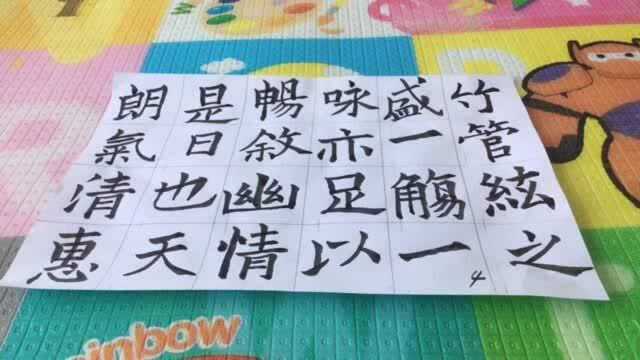 竹管絃之
盛一觴一
咏亦足以
暢敘幽情
是日也天
朗氣清惠
4
inbow